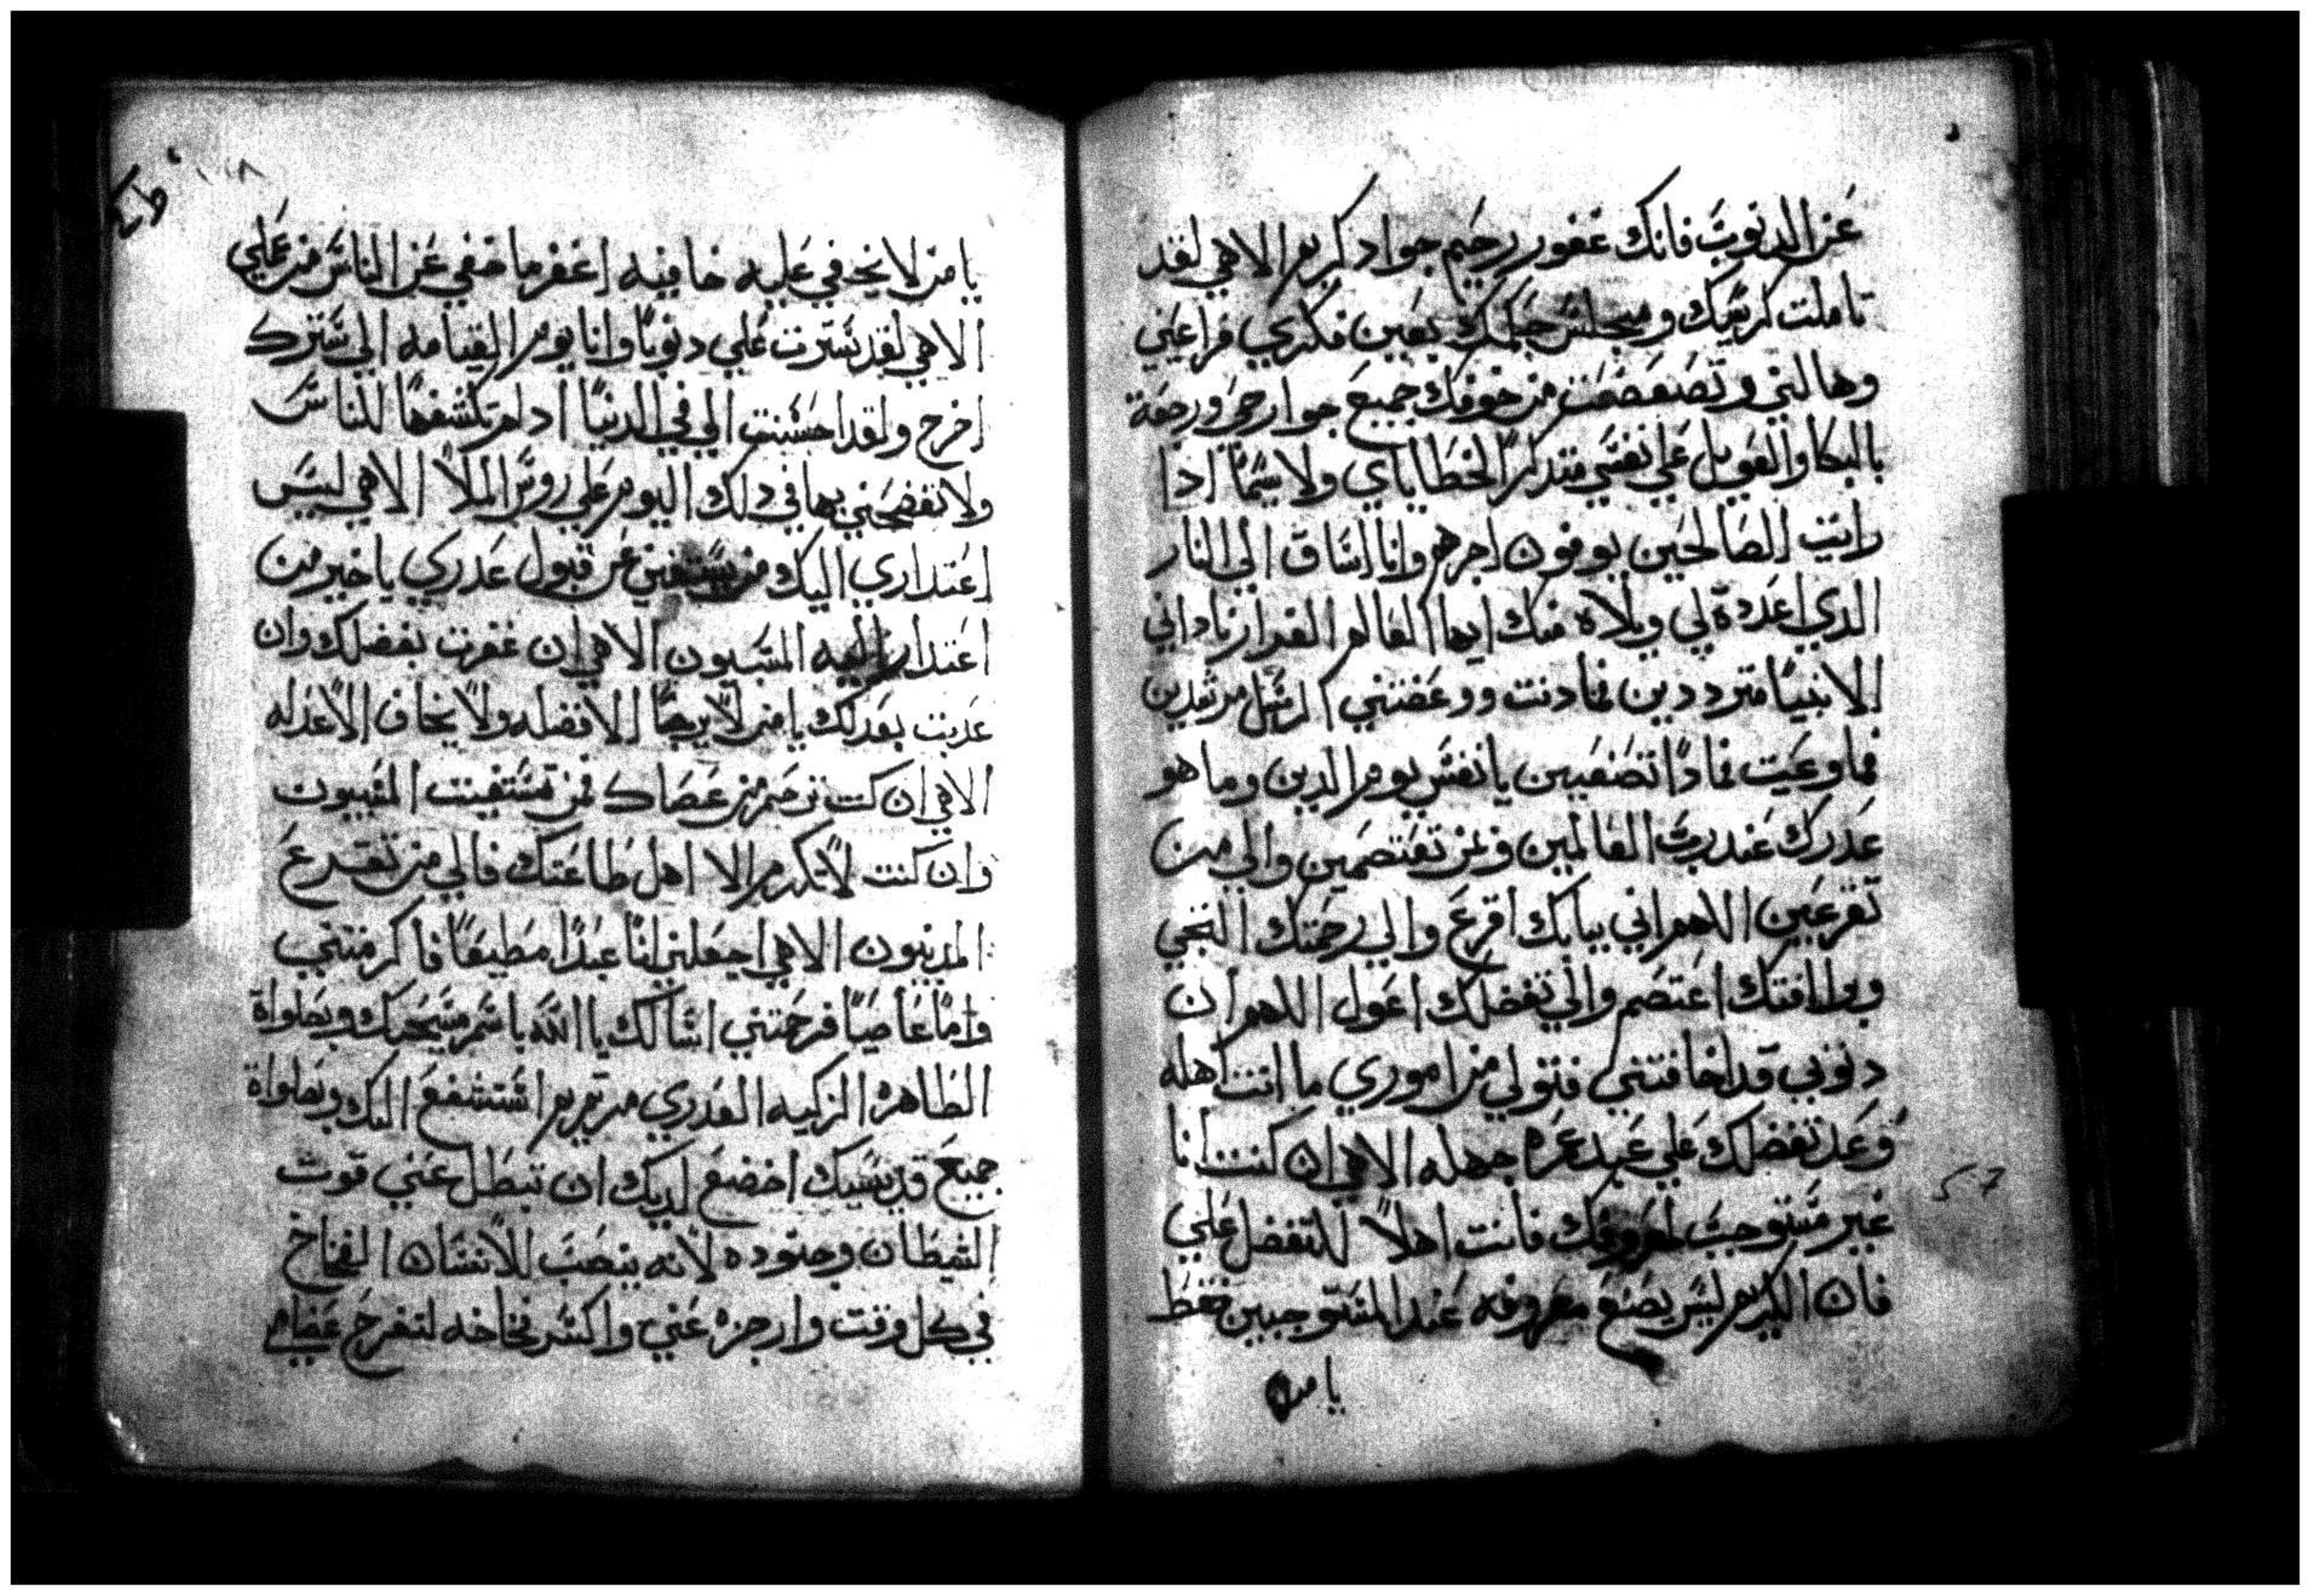 عن الدنوب فانك غفور رحيم جواد كريم الاهي لقد
تاملت كرسيك ومجلس حكمك بعين فكري فراعني
وهالني وتضعضعت من خوفك جميع جوارحي ورجعة
بالبكا والعويل علي نفسي متدكرًا لخطاياي ولا سيمًا ادا
رايت الصالحين يوفون اجرهم وانا اساق الي النار
الدي اعدة لي ويلاه منك ايها العالم الغرار ناداني
الانبيًا مترددين فما دنت ووعضتني الرسل مرشدين
فما وعيت فمادًا تصنعين يا نفس يوم الدين وما هو
عدرك عند رب العالمين وبمن تعتصمين والي من
تفزعين اللهم اني ببابك اقرع والي رحمتك التجي
وبرافتك اعتصم والي تفضلك اعول اللهم ان
دنوبي قد اخافتني فتولي من اموري ما انت اهله
وعد تفضلك علي عبد غره جهله الاهي ان كنت انا
غير مستوجب لمعروفك فانت اهلاً للتفضل علي
فان الكريم ليس يصنع معروفه عند المستوجبين فقط
يا من
يا من لا يخفي عليه خافيه اغفر ما خفي عن الناس من عملي
الاهي لقد سترت علي دنوبًا وانا يوم القيامه الي سترك
احوج ولقد احسنت الي في الدنيًا اد لم تكشفها للناس
ولا تفضحني بها في دلك اليوم علي روس الملاً الاهي ليس
اعتداري اليك من يستغني عن قبول عدري يا خير من
اعتدار اليه المسيون الاهي ان غفرت بفضلك وان
عدبت بعدلك يا من لا يرجًا الا فضله ولا يخاف الا عدله
الاهي ان كنت ترحم من عصاك فمن تستغيث المسيون
وان كنت لا تكرم الا اهل طاعتك فالي من تفزع
المدنبون الاهي اجعلني امًا عبدًا مطيعًا فاكرمتني
وامًا عاصيًا فرحمتني اسالك يا الله باسم مسيحك وبصلواة
الطاهره الزكيه العدري مرتمريم استشفع اليك وبصلواة
جميع قديسيك اخضع لديك ان تبطل عني قوت
الشيطان وجنوده لانه ينصب للانسان الفخاخ
في كل وقت وازجره عني واكسر فخاخه لتفرح عضامي